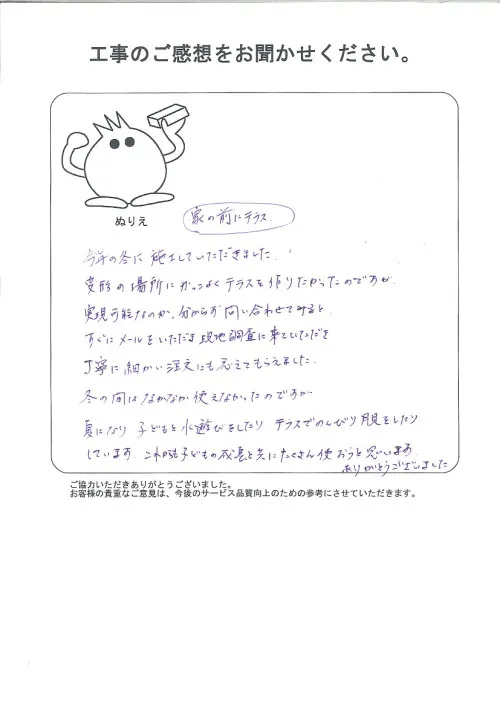 工事のご感想をお聞かせください。
ぬりえ
家の前にテラス.
今年の冬に施工していただきました.
変形の場所にかっこよくテラスを作りたかったのですが
実現可能なのか、分からず問い合わせてみると、
すぐにメールをいただき現地調査に来ていただき
丁寧に細かい注文にも応えてもらえました.
冬の間はなかなか使えなかったのですが
夏になり子どもと水遊びをしたり テラスでのんびり月見をしたり
しています. これからも子どもの成長と共にたくさん使おうと思います.
ありがとうございました
ご協力いただきありがとうございました。
お客様の貴重なご意見は、今後のサービス品質向上のための参考にさせていただきます。